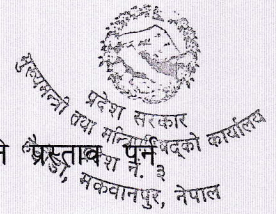 प्रदेश सरकार
मुख्यमन्त्री तथा मन्त्रिपरिषद्को कार्यालय
प्रदेश नं. ३
हेटौंडा, मकवानपुर, नेपाल
ने प्रस्ताव पुर्न